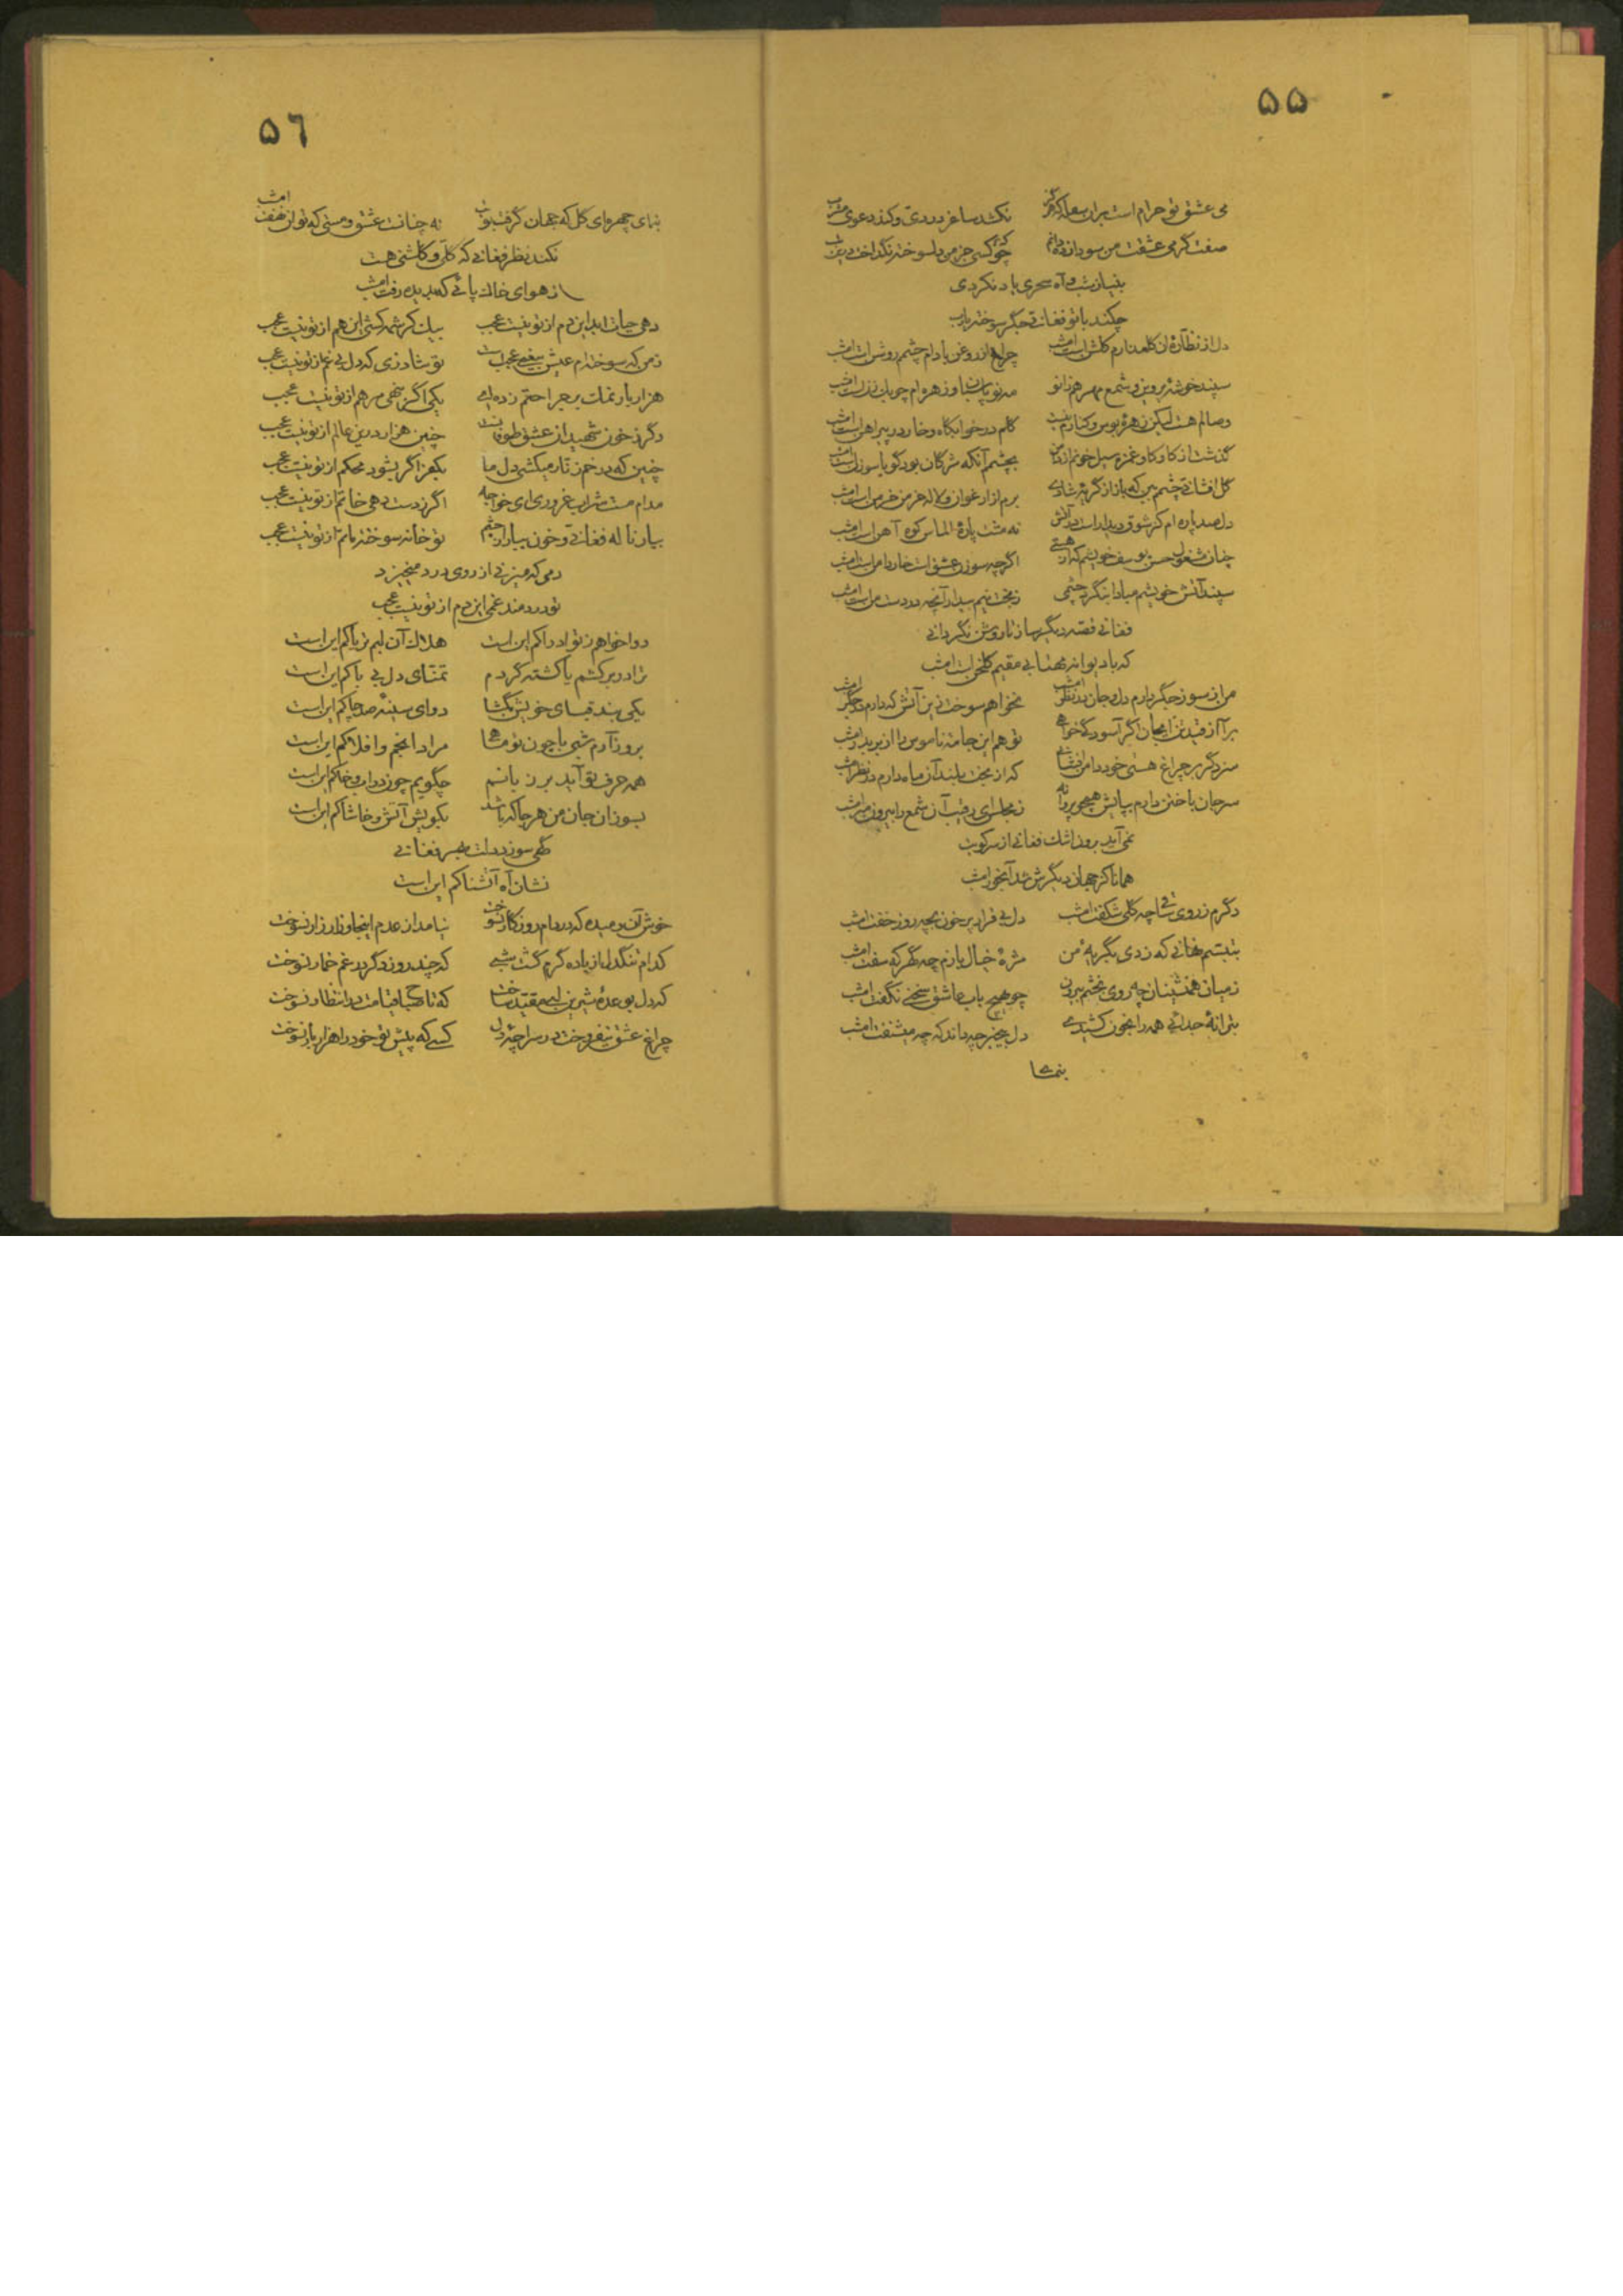 ۵۵
می عشق تو حرام است بران سفله که نکشد ساغر دردی و کند دعوی مشرب
صفت گرمی عشقت من سودازده دانم چو کسی جز من دلسوخته نگداخت درین تب
بنیاز شب و آه سحری یاد نکردی
چکند با تو فغانی جگر سوخته یارب
دل از نظاره آن گلعذارم گلشن است امشب چراغ از روغن بادام چشمم روشن است امشب
سپند خوشه پروین و شمع مهر هر زانو مه نو و زهره ام چو یک ارزن است امشب
وصالم هست لیکن زهره بوس و کنارم نیست گلم در خوابگاه و خار در پیراهن است امشب
گذشت از کاوکاو غمزه سیل خونم از دامن بچشمم آنکه مژگان بود گویا سوزن است امشب
گل افشانی چشمم بین که باز از گریه شادی برم از ارغوان و لاله خرمن خرمن است امشب
دل صد پاره ام کز شوق دیدار است در آتش نه مشت پاره الماس کوه آهن است امشب
چنان مشغول حسن یوسف خویشم که از هستی اگرچه سوزن عشق است خار دامن است امشب
سپند آتش خویشم مبادا بنگرد چشمی ز بخت نیم بیدار آنچه در دست من است امشب
فغانی قصه دیگر ساز تا روشن نگردانی
که با دیوانه مهتابی مقیم گلخن است امشب
من از سوز جگر دارم دل و جان در نظر امشب نخواهم سوخت زین آتش که دارم در جگر امشب
برآ از قید تن ایجان اگر آسودگی خواهی تو هم این جامه ناموس را از بر بدر امشب
سزد گر بر چراغ هستی خود دامن افشانم که از بخت بلند آن ماه دارم در نظر امشب
سر جان باختن دارم بپایش همچو پروانه ز مجلس ای رقیب آن شمع را بیرون مبر امشب
نمی آید برون اشک فغانی از سر کویت
همانا کز جهان دیگرش شد آبخور امشب
دگرم ز روی ساقی چه گلی شکفت امشب دل بیقرار پر خون بچه روز خفت امشب
بتبسم نهانی که زدی بگریه من مژه خیال بازم چه گهر که سفت امشب
ز میان همنشینان چه روی بخشم بیرون چو هیچ باب عاشق سخنی نگفت امشب
بترانه جدائی همه را بخون کشیدی دل بیخبر چه داند که چه میشنفت امشب
بنمای
۵٦
بنمای چهره ای گل که جهان گرفت بویت نه چنانست عشق و مستی که توان نهفت امشب
نکند نظر فغانی که گلی و گلشنی هست
ز هوای خاک پائی که بدیده رفت امشب
دهی حیات ابد این دم از تو نیست عجب بیک کرشمه کشی این هم از تو نیست عجب
ز من که سوخته ام عیش بیغمی عجب است تو شاد زی که دل بی غم از تو نیست عجب
هزار بار نمک بر جراحتم زده ای یکی اگر بنهی مرهم از تو نیست عجب
دگر ز خون شهیدان عشق طوفان شد چنین هزار درین عالم از تو نیست عجب
چنین که در خم زنار میکشی دل ما بکفر اگر بشود محکم از تو نیست عجب
مدام مست شراب غروری ای خواجه اگر ز دست دهی خاتم از تو نیست عجب
بیار ناله فغانی و خون ببار از چشم تو خانه سوخته ماتم از تو نیست عجب
دمی که میزنی از روی درد میخیزد
تو دردمند غمی این دم از تو نیست عجب
دوا خواهم ز تو ادراکم این است هلاک آن لبم تریاکم این است
ترا در بر کشم یا کشته گردم تمنای دل بی باکم این است
یکی بند قبای خویش بگشا دوای سینه صد چاکم این است
بروز آرم شبی با چون تو ماهی مراد انجم و افلاکم این است
همه حرف تو آید بر زبانم چگویم چون در آب و خاکم این است
بسوز آن جان من هر جا که باشد بکویش آتش و خاشاکم این است
گهی سوزد دلت بهر فغانی
نشان آه آتشناکم این است
خوش آن رمیده که در دام روزگار نسوخت نیامد از عدم اینجا و زار زار نسوخت
کدام تنگدل از باده گرم گشت شبی که چند روز دگر در غم خمار نسوخت
که دل بوعده شیرین لبی مقید ساخت که تا صباح قیامت در انتظار نسوخت
چراغ عشق نیفروخت در سراچه دل کسی که پیش تو خود را هزار بار نسوخت